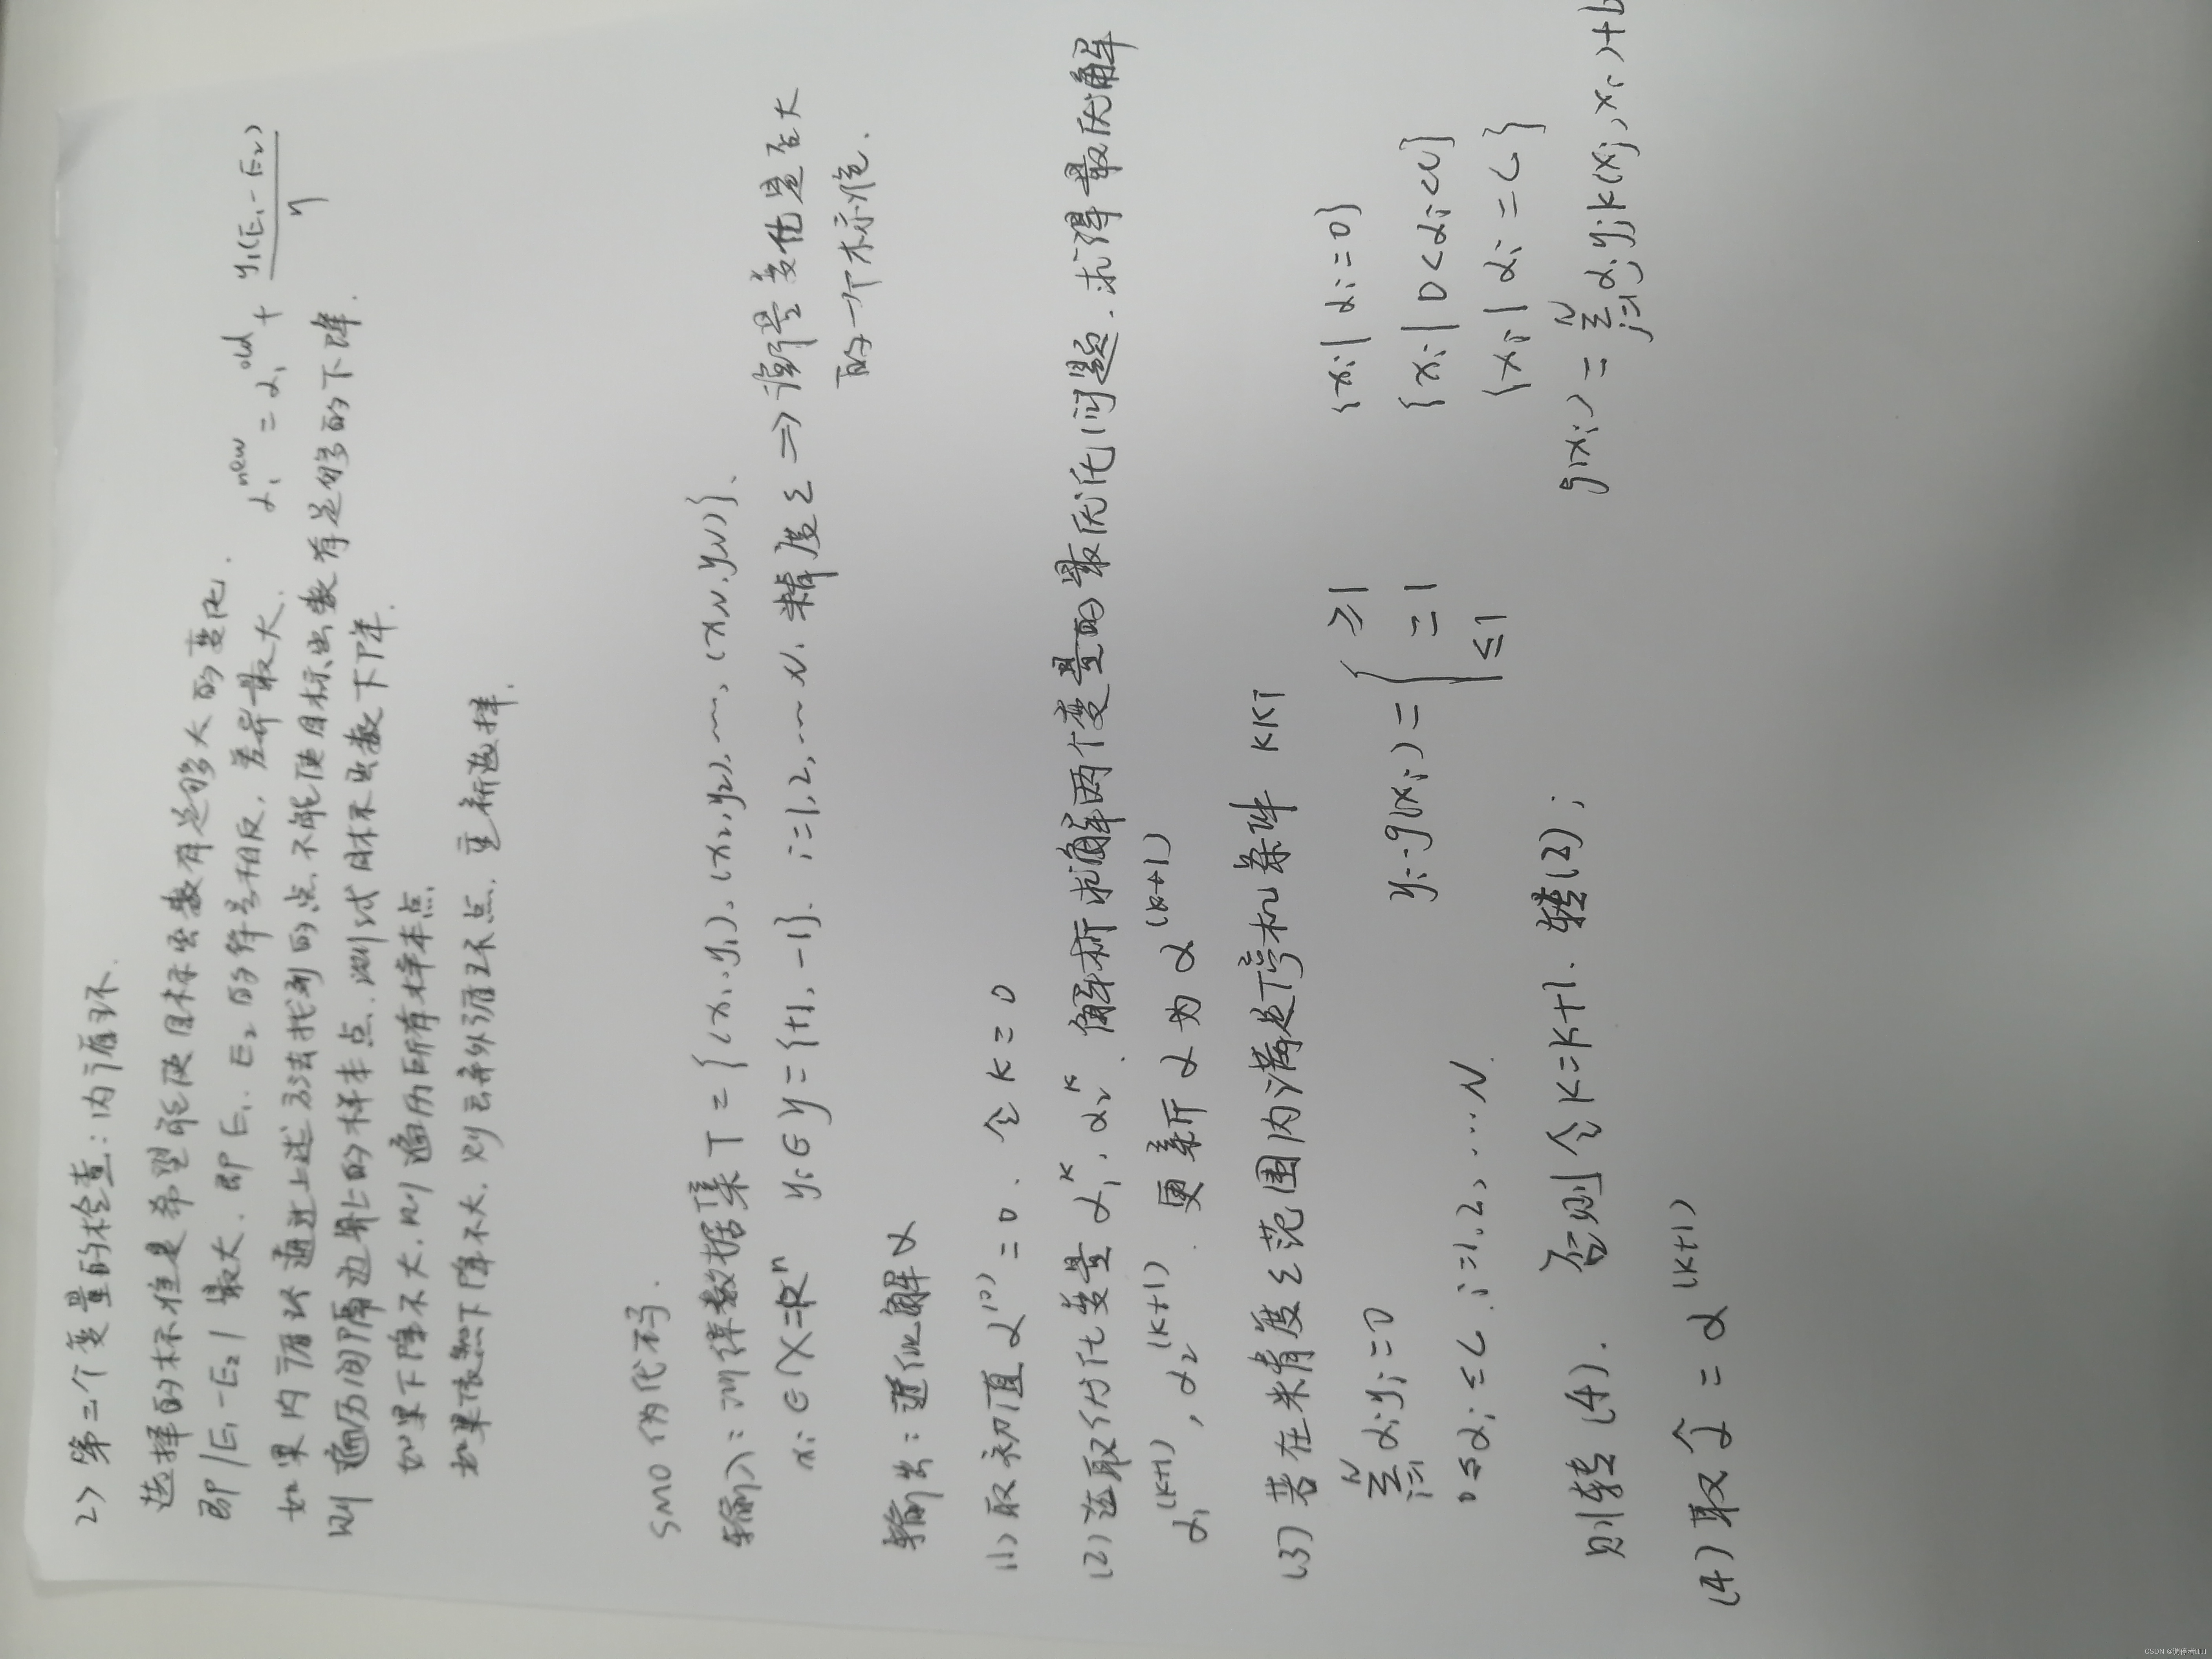 2> 第二个变量的检查:内循环.
选择的标准是希望能使目标函数有足够大的变化.
即|E₁-E₂|最大. 即E₁、E₂的符号相反, 差异最大. α₁^new = α₁^old + y₁(E₁-E₂)/η
如果内循环通过上述方法找到的点, 不能使目标函数有足够的下降.
则遍历间隔边界上的样本点、测试目标函数下降.
如果下降不大, 则遍历所有样本点
如果依然下降不大, 则丢弃外循环点, 重新选择.
SMO伪代码.
输入: 训练数据集T={(x₁,y₁),(x₂,y₂),…,(x_N,y_N)}、
xᵢ∈X=Rⁿ yᵢ∈y={+1,-1}. i=1,2,…N. 精度ε ⇒ 衡量变化是否大
的一个标准.
输出: 近似解α
(1) 取初值α⁽⁰⁾=0. 令k=0
(2) 选取优化变量α₁ᵏ, α₂ᵏ. 解析求解两个变量的最优化问题. 求得最优解
α₁^(k+1), α₂^(k+1). 更新α为α^(k+1)
(3) 若在精度ε范围内满足停机条件 KKT
∑_{i=1}^N αᵢyᵢ=0 yᵢ·g(xᵢ)= { ≥1 {xᵢ|αᵢ=0}
=1 {xᵢ|0<αᵢ<C}
0≤αᵢ≤C. i=1,2,….N. ≤1 {xᵢ|αᵢ=C}
则转(4). 否则令k=k+1. 转(2); g(xᵢ)=∑_{j=1}^N αⱼyⱼK(xⱼ,xᵢ)+b
(4) 取α̂=α^(k+1)
CSDN @调停者